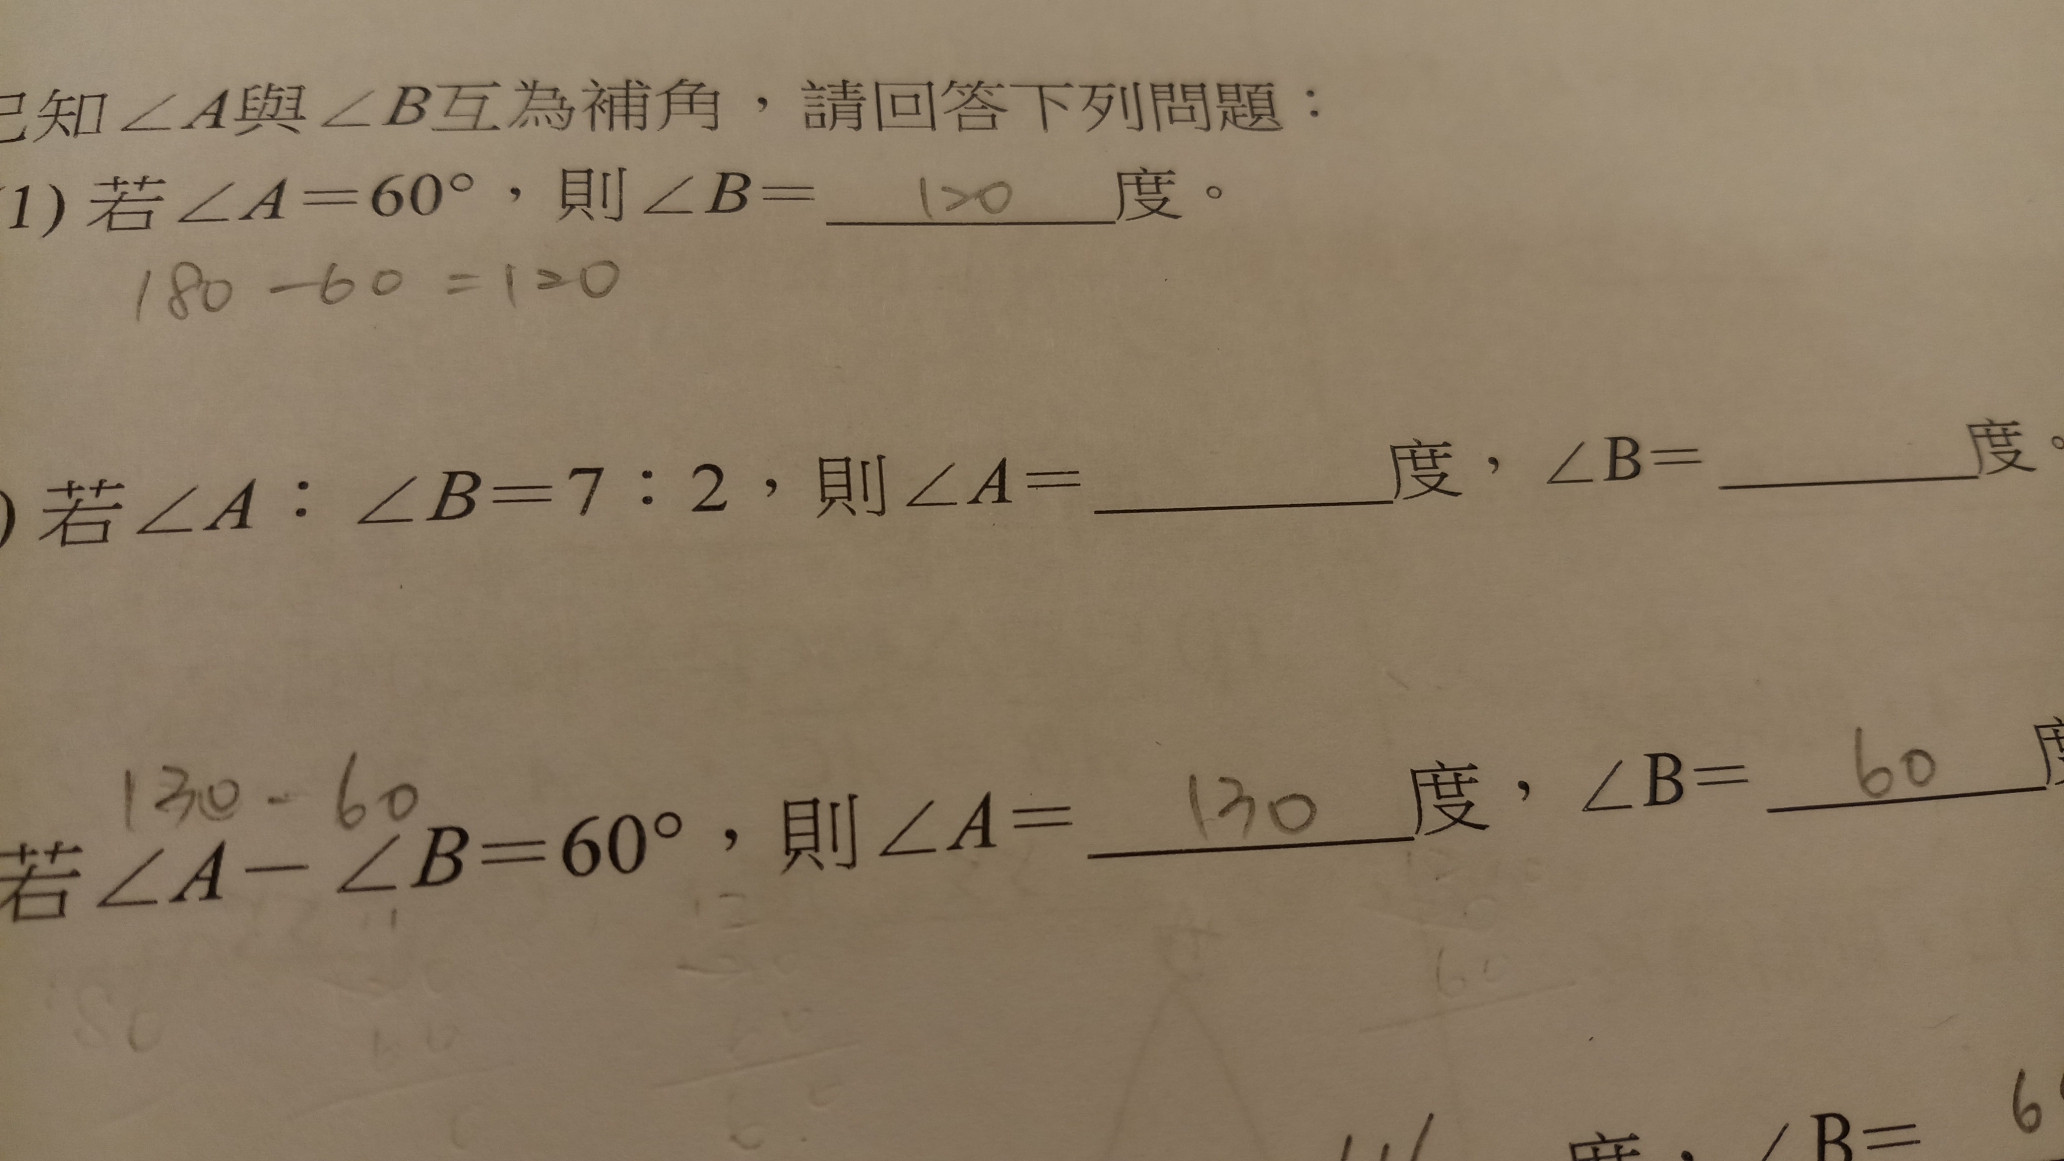 已知∠A與∠B互為補角，請回答下列問題：
(1) 若∠A＝60°，則∠B＝ 120 度。
180 －60 ＝120
) 若∠A：∠B＝7：2，則∠A＝______度，∠B＝______度。
130 - 60
若∠A－∠B＝60°，則∠A＝ 130 度，∠B＝ 60 度
度，∠B＝ 6